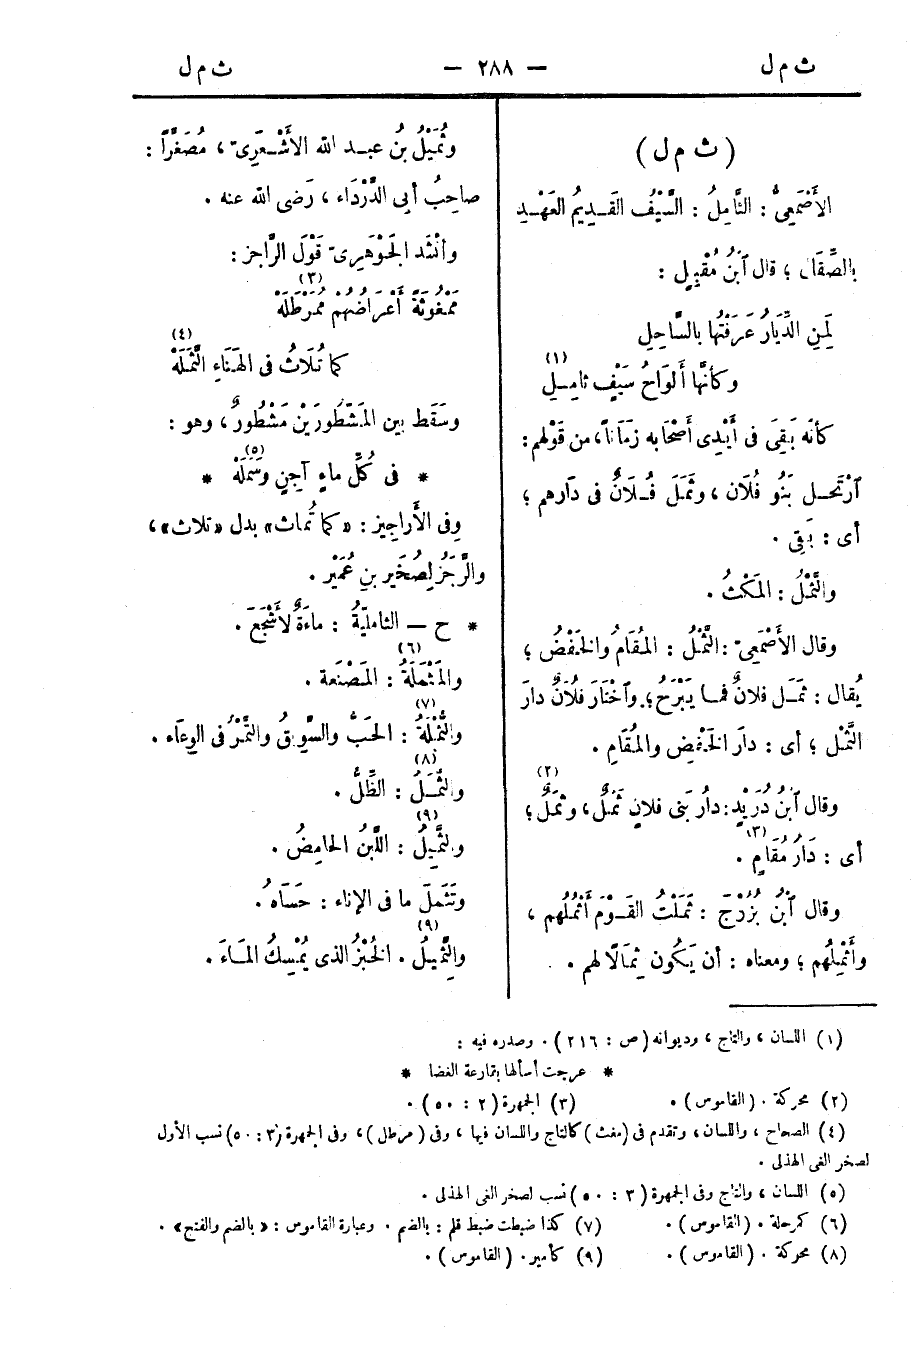 ث م ل — ٢٨٨ — ث م ل
( ث م ل )
الأَصْمَعِىُّ : الثَّامِلُ : السَّيْفُ القَدِيمُ العَهْدِ
بالصِّقَال ؛ قال ٱبنُ مُقْبِلٍ :
لِمَنِ الدِّيَارُ عَرَفْتُها بالسَّاحِلِ
وكأنَّها أَلْوَاحُ سَيْفٍ ثامِلِ (١)
كأنّه بَقِىَ فى أَيْدِى أصْحَابه زمَاناً، من قَوْلهم:
ٱرْتَحَل بَنُو فُلَان ، وثَمَلَ فُلَانٌ فى دَارهم ؛
أى : بَقِىَ .
والثَّمْلُ : المَكْثُ .
وقال الأَصْمَعِىّ : الثَّمْلُ : المُقَامُ والخَفْضُ ؛
يُقال : ثَمَلَ فلانٌ فما يَبْرَحُ؛ وٱخْتَارَ فلانٌ دارَ
الثَّمْل ؛ أى : دارَ الخَفْضِ والمُقَامِ .
وقال ٱبنُ دُرَيْدٍ: دارُ بَنى فلانٍ ثَمْلٌ ، وثَمَلٌ (٢) ؛
أى : دَارُ مُقَامٍ (٣) .
وقال ٱبْنُ بُزُرْجَ : ثَمَلْتُ القَوْمَ أَثْمُلُهم ،
وأَثْمِلُهم ؛ ومعناه : أن يَكُون ثِمَالًا لهم .
وثُمَيْلُ بُن عبد الله الأَشْعَرِىّ ، مُصَغَّراً :
صاحِبُ أبى الدَّرْدَاء ، رَضى الله عنه .
وأنْشَد الجَوْهَرِىّ قَوْلَ الرَّاجز :
مَمْغُوثَةً أَعْرَاضُهُمْ مُمَرْطَلَهْ (٣)
كما تُلَاثُ فى الهَنَاءِ الثَّمَلَهْ (٤)
وسَقَط بين المَشْطُورَيْن مَشْطُورٌ ، وهو :
* فى كُلِّ ماءٍ آجِنٍ وسَمَلَهْ (٥) *
وفى الأَراجيز : «كما تُماث» بدل «تلاث» ،
والرَّجَزُ لِصُخَيْر بنِ عُمَيْر .
* ح — الثامليّةُ : ماءَةٌ لأَشْجَعَ .
والمَثْمَلَةُ (٦) : المَصْنَعة .
والثُّمْلَةُ (٧) : الحَبُّ والسَّوِيقُ والتَّمْرُ فى الوِعَاء .
والثَّمَلُ (٨) : الظِّلُّ .
والثَّمِيلُ (٩) : اللَّبَنُ الحامِضُ .
وتَثَمَّلَ ما فى الإناء : حَسَاهُ .
والثَّمِيلُ (٩) . الخُبْزُ الذى يُمْسِكُ المَاءَ .
(١) اللسان ، والتاج ، وديوانه (ص : ٢١٦) . وصدره فيه :
* عرجت أسألها بقارعة الغضا *
(٢) محركة . (القاموس) . (٣) الجمهرة (٢ : ٥٠) .
(٤) الصحاح ، واللسان، وتقدم فى (مغث) كالتاج واللسان فيها ، وفى (مرطل)، وفى الجمهرة (٣: ٥٠) نسب الأول
لصخر الغى الهذلى .
(٥) اللسان ، والتاج وفى الجمهرة (٣ : ٥٠) نسب لصخر الغى الهذلى .
(٦) كمرحلة . (القاموس) . (٧) كذا ضبطت ضبط قلم : بالضم . وعبارة القاموس : «بالضم والفتح» .
(٨) محركة . (القاموس) . (٩) كأمير . (القاموس) .